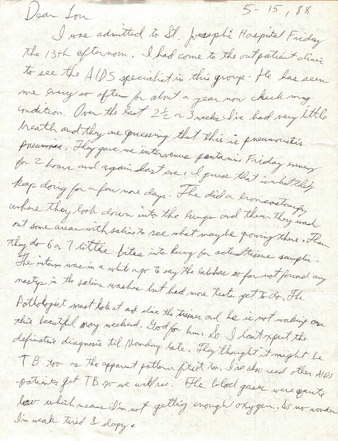 5-15, 88
Dear Lou
I was admitted to St. Joseph's Hospital Friday
the 13th afternoon. I had come to the outpatient clinic
to see the AIDS specialist in this group. He has seen
me every so often for about a year now check my
condition. Over the last 2½ - 3 weeks I've had very little
breath and they are guessing that this is pneumocistis
pneumonia. They gave me intervenus Friday
for 2 hours and again last eve. I guess that is what they
keep doing for a few more days. The did a broncoscopy
where they look down into the lungs and then they wash
out some areas with saline to see what may be growing there. Then
they do 6 or 7 little bites into lung for actual tissue samples.
The intern was in a while ago to say the lab has so far not found any
in the saline washes but had more tests yet to do. The
Pathologist must look at and slice the tissues and he is not working on
this beautiful May weekend. Good for him. So I don't expect the
definitive diagnosis til Monday late. They thought it might be
TB too as the apparent pattern fits it too. I've also read other AIDS
patients get TB so we will see. The blood gases were quite
low which means I'm not getting enough oxygen. So no wonder
I'm weak tired & sleepy.